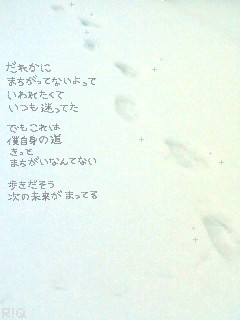 だれかに
まちがってないよって
いわれたくて
いつも迷ってた
でもこれは
僕自身の道
きっと
まちがいなんてない
歩きだそう
次の未来が まってる
R!Q